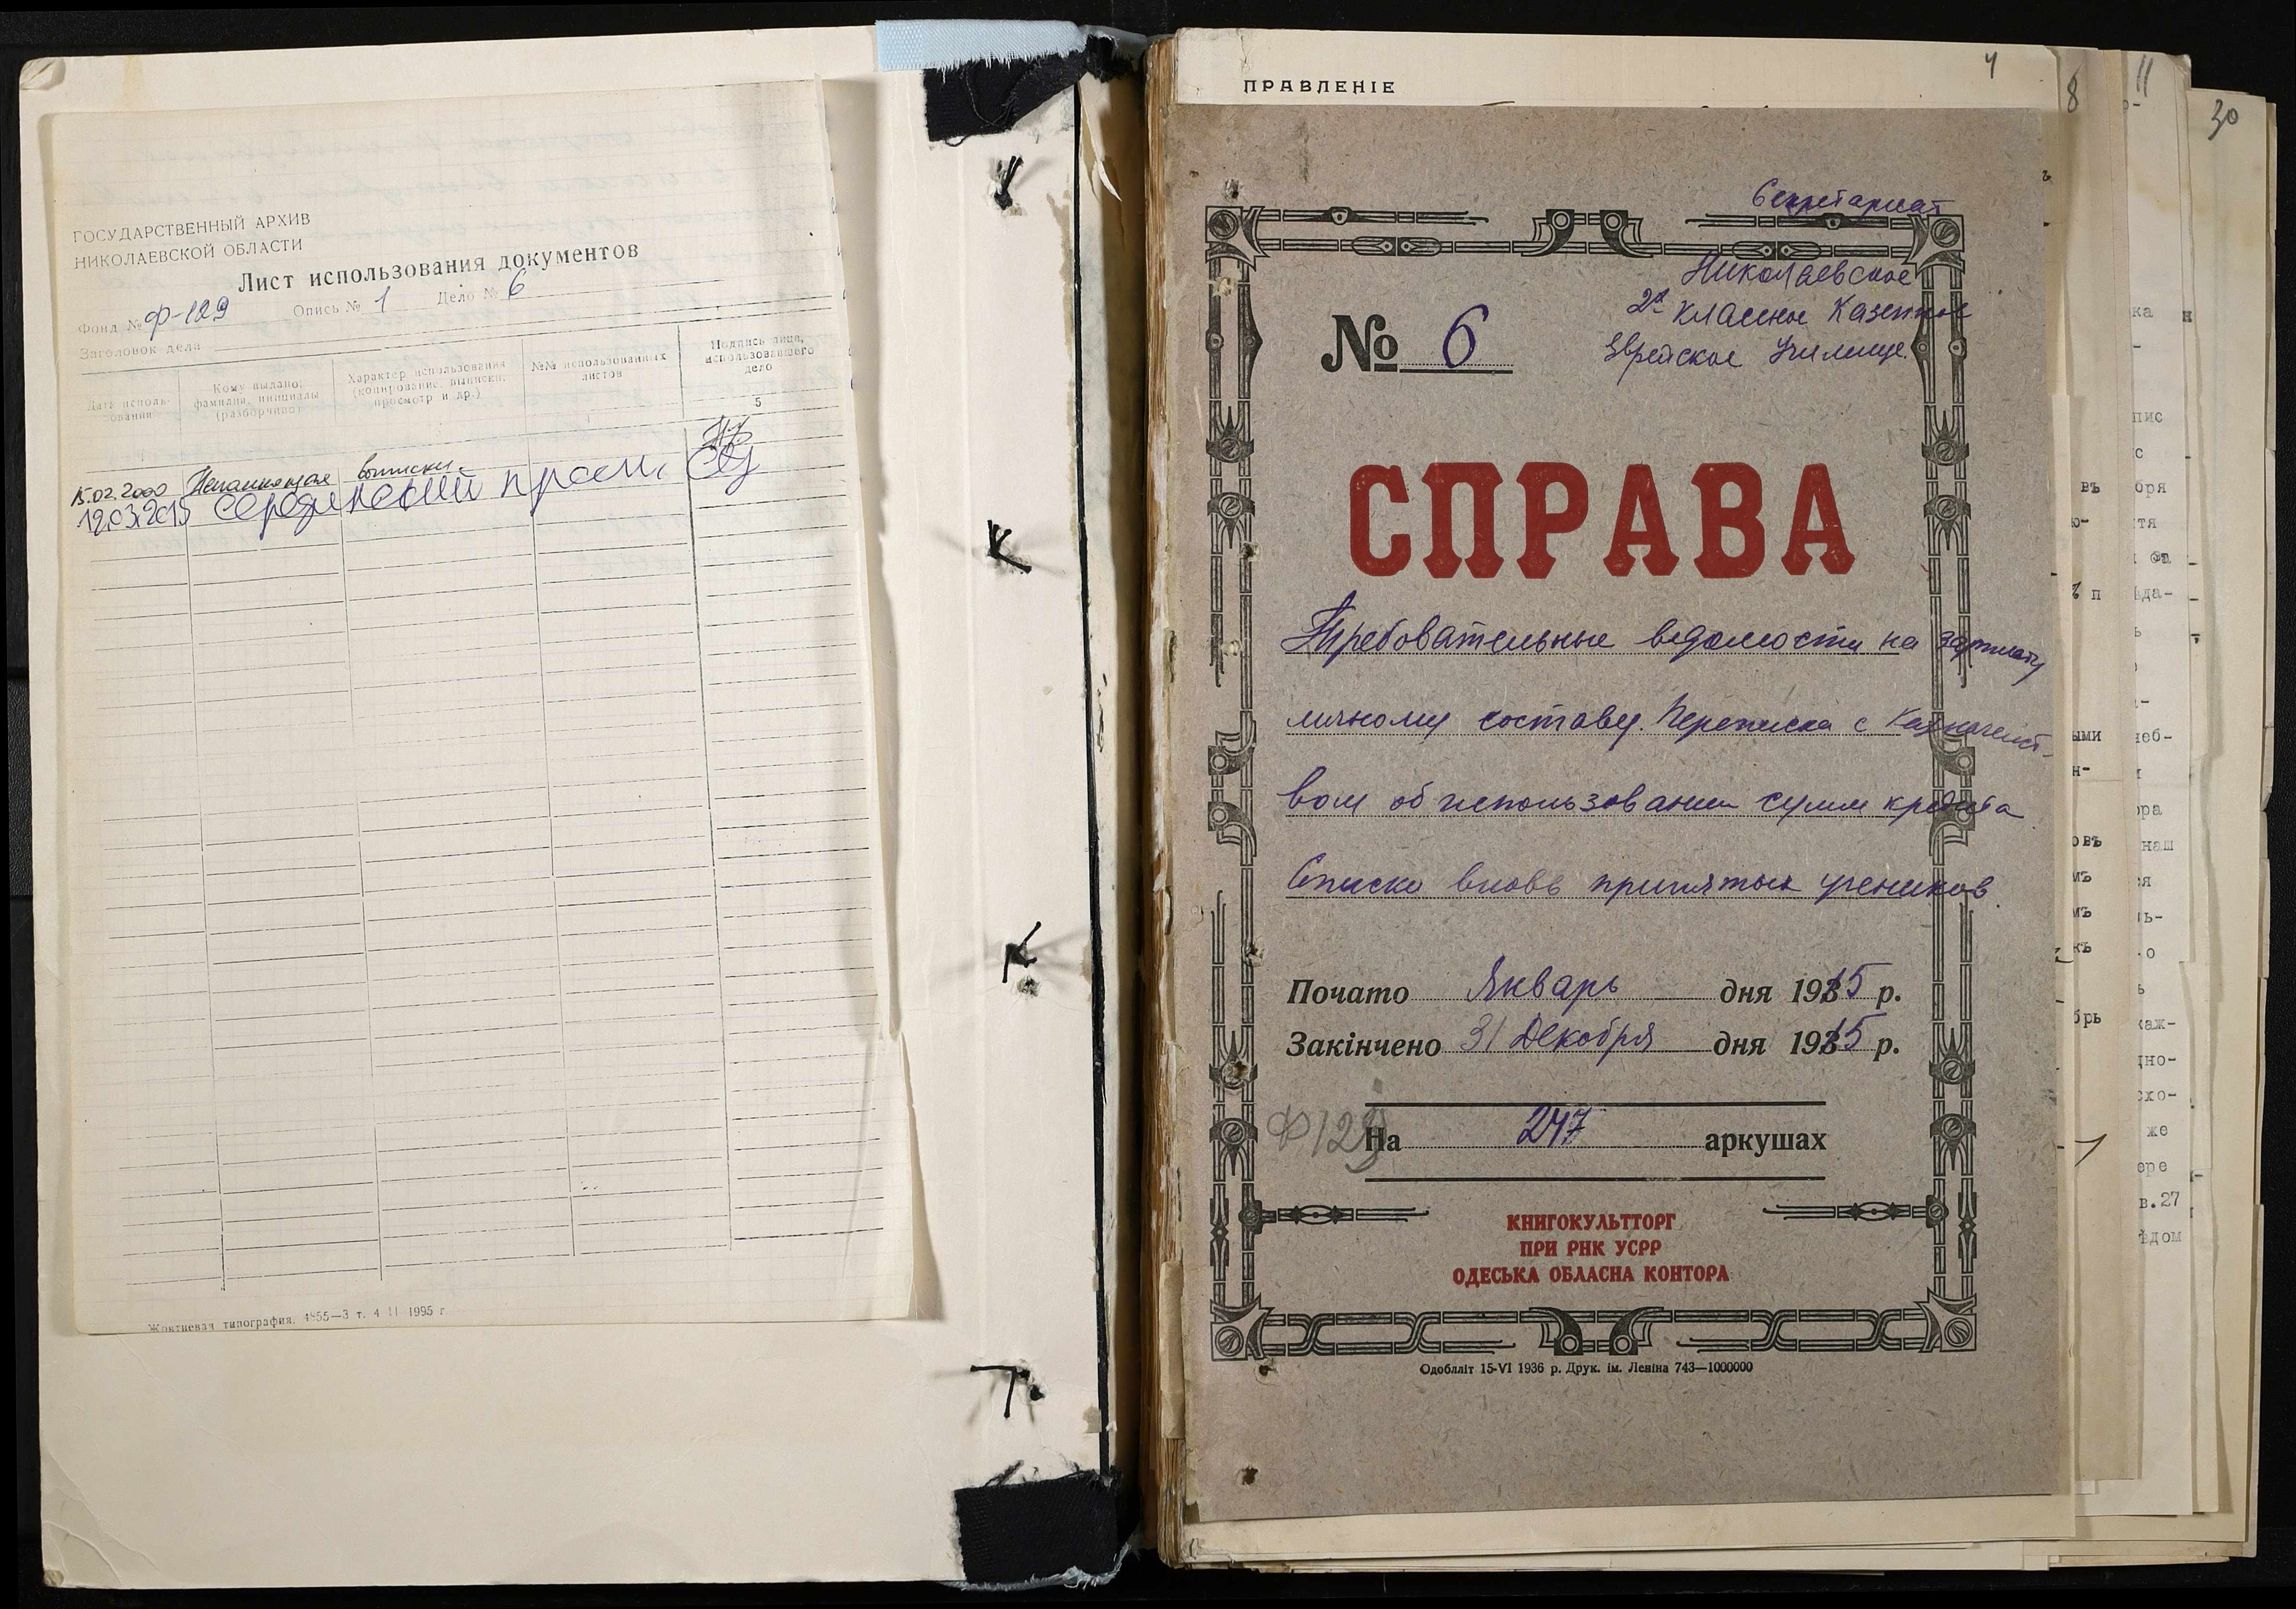 ГОСУДАРСТВЕННЫЙ АРХИВ
НИКОЛАЕВСКОЙ ОБЛАСТИ
Лист использования документов
Фонд № Ф-129 Опись № 1 Дело № 6
Заголовок дела
Дата исполь-
зования
Кому выдано:
фамилия, инициалы
(разборчиво)
Характер использования
(копирование, выписки,
просмотр и др.)
№№ использованных
листов
Подпись лица,
использовавшего
дело
5
15.02.2000 выписки
19.03.2015
4855—3 т. 4 II 1995 г
ПРАВЛЕНІЕ
4
8
11
30
Секретариат
Николаевское
2х классное Казенное
Еврейское Училище.
№ 6
СПРАВА
Требовательные ведомости на зарплату
личному составу. Переписка с Казначейст-
вом об использовании сумм кредита
Списки вновь принятых учеников.
Почато Январь дня 1915 р.
Закінчено 31 Декабря дня 1915 р.
Ф129
На 247 аркушах
КНИГОКУЛЬТТОРГ
ПРИ РНК УСРР
ОДЕСЬКА ОБЛАСНА КОНТОРА
Одоблліт 15-VI 1936 р. Друк. ім. Леніна 743—1000000